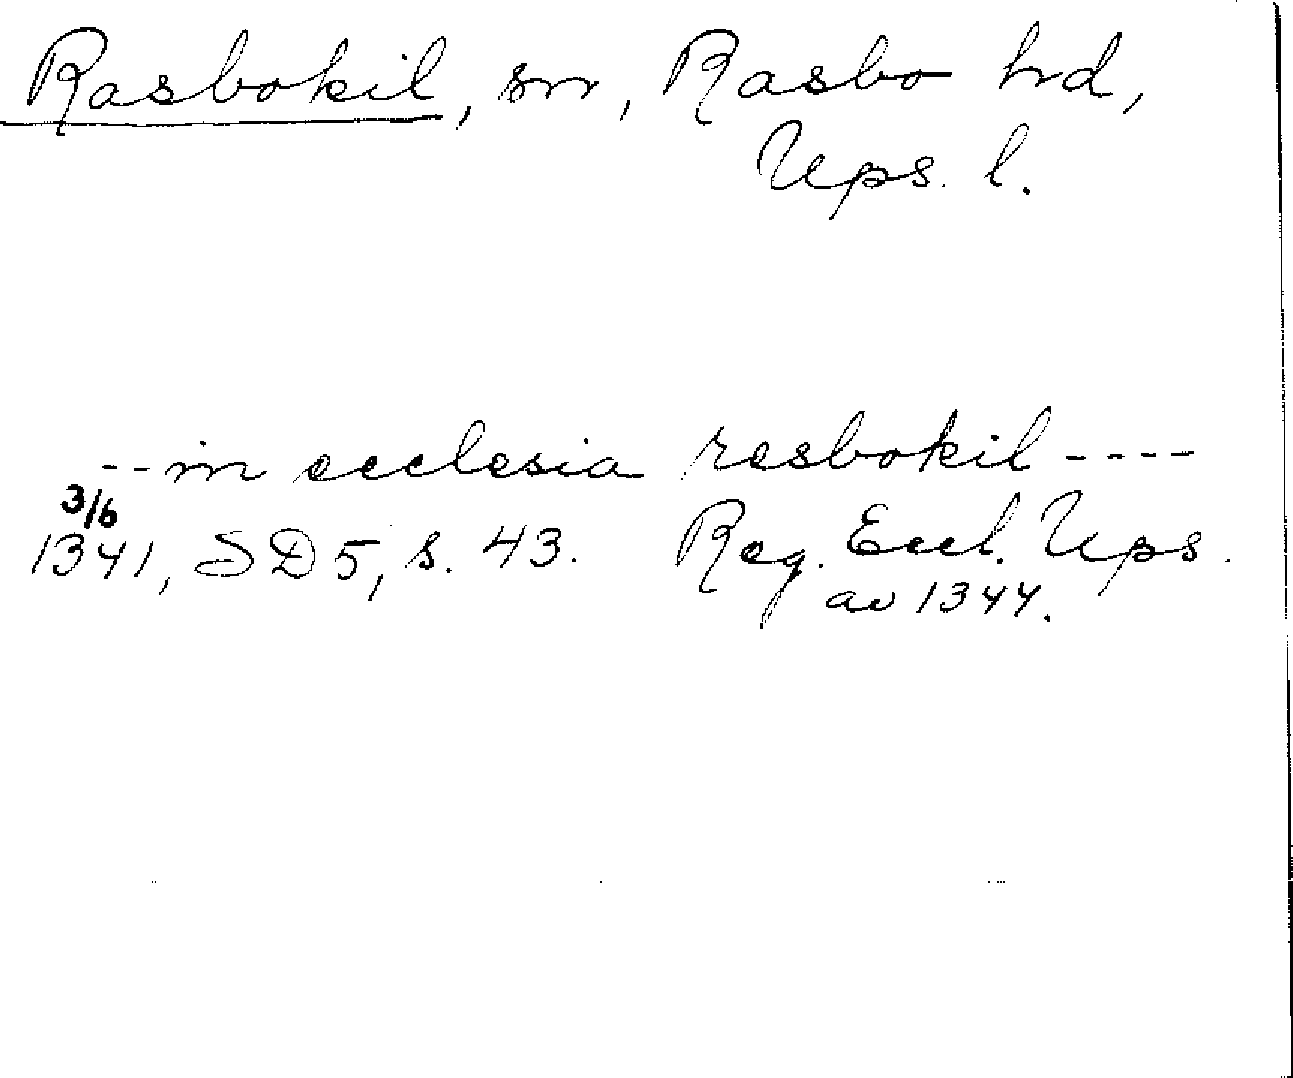 Rasbokil, sn, Rasbo hd,
Ups. l.
-- in ecclesia resbokil ----
3/6
1341, SD 5, s. 43. Reg. Eccl. Ups.
av 1344.